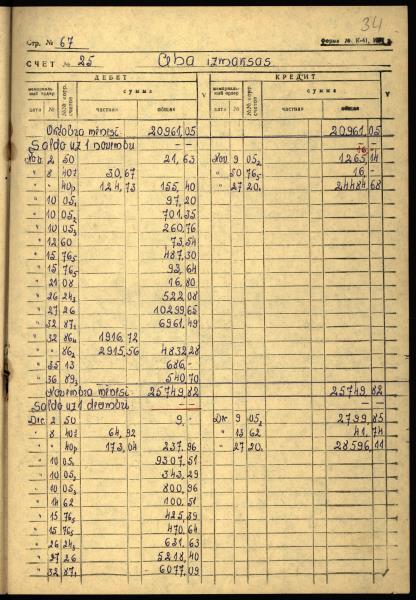 34
Стр. № 67
Форма № К-41
СЧЕТ № 25 Ceha izmaksas
ДЕБЕТ КРЕДИТ
мемориальный ордер №№ корр. счетов сумма V мемориальный ордер №№ корр. счетов сумма V
дата № частная общая дата № частная общая
Oktobra mēnesi 20961,05 20961,05
Saldo uz 1 novembri - - - -
Nov. 2 50 21,63 Nov. 9 05₂ 1265,14
" 8 40₂ 30,67 " 50 76₅ 16,-
" " 40р 124,73 155,40 " 27 20₁ 24484,68
" 10 05₁ 97,20
" 10 05₂ 701,35
" 10 05₃ 260,76
" 12 60 73,54
" 15 76₅ 487,30
" 15 76₅ 93,64
" 21 08 16,80
" 26 24₃ 522,08
" 27 26 10299,65
" 32 87₁ 6961,49
" 32 86₁ 1916,72
" " 86₂ 2915,56 4832,28
" 35 13 686,-
" 36 89₃ 540,70
Novembra mēnesi 25749,82 25749,82
Saldo uz 1 decembri - - - -
Dec. 2 50 9,- Dec. 9 05₂ 2799,85
" 8 40₂ 64,92 " 13 62 41,74
" " 40р 173,04 237,96 " 27 20₁ 28596,11
" 10 05₁ 9307,51
" 10 05₂ 343,29
" 10 05₃ 800,96
" 14 62 100,51
" 15 76₅ 425,39
" 15 76₅ 470,64
" 26 24₃ 631,63
" 27 26 5218,40
" 32 87₁ 6077,09